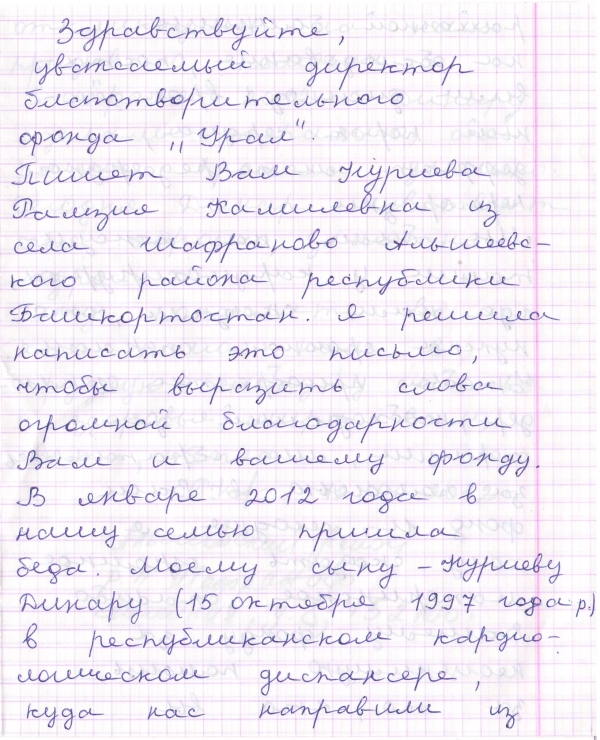 Здравствуйте,
уважаемый директор
благотворительного
фонда „Урал".
Пишет Вам Нуриева
Рамзия Камилевна из
села Шафраново Альшеевс-
кого района республики
Башкортостан. Я решила
написать это письмо,
чтобы выразить слова
огромной благодарности
Вам и вашему фонду.
В январе 2012 года в
нашу семью пришла
беда. Моему сыну - Нуриеву
Динару (15 октября 1997 года р.)
в республиканском кардио-
логическом диспансере,
куда нас направили из